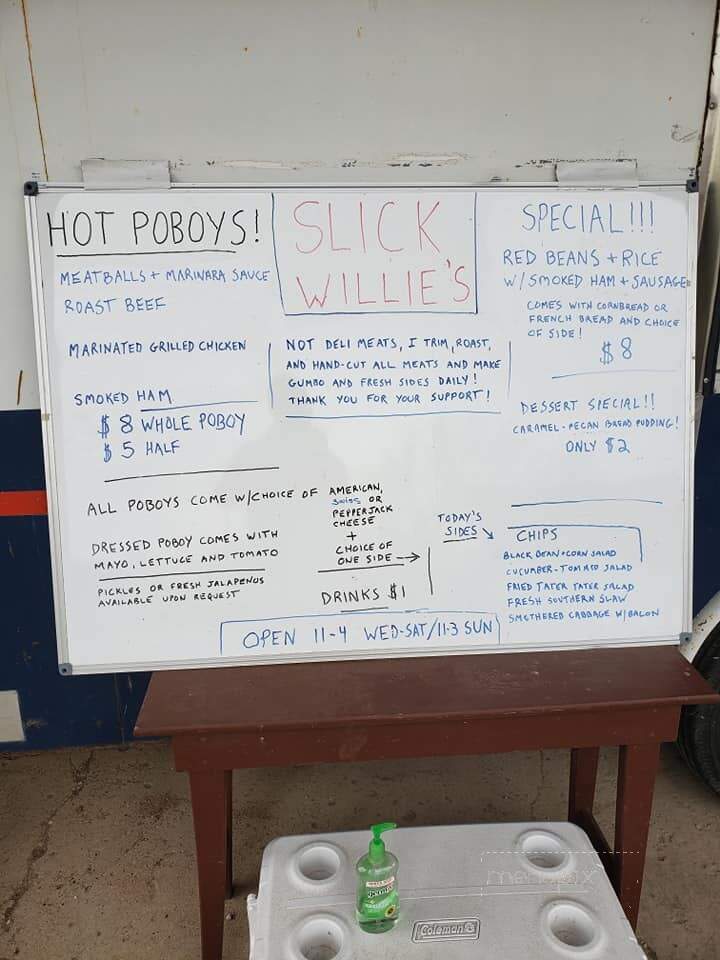 HOT POBOYS!
MEATBALLS + MARINARA SAUCE
ROAST BEEF
MARINATED GRILLED CHICKEN
SMOKED HAM
$8 WHOLE POBOY
$5 HALF
SLICK
WILLIE'S
NOT DELI MEATS, I TRIM, ROAST,
AND HAND-CUT ALL MEATS AND MAKE
GUMBO AND FRESH SIDES DAILY!
THANK YOU FOR YOUR SUPPORT!
SPECIAL!!!
RED BEANS + RICE
W/SMOKED HAM + SAUSAGE
COMES WITH CORNBREAD OR
FRENCH BREAD AND CHOICE
OF SIDE!
$8
DESSERT SPECIAL!!
CARAMEL-PECAN BREAD PUDDING!
ONLY $2
ALL POBOYS COME W/CHOICE OF AMERICAN,
SWISS OR
PEPPERJACK
CHEESE
+
CHOICE OF
ONE SIDE →
DRESSED POBOY COMES WITH
MAYO, LETTUCE AND TOMATO
PICKLES OR FRESH JALAPENOS
AVAILABLE UPON REQUEST
DRINKS $1
TODAY'S
SIDES
CHIPS
BLACK BEAN+CORN SALAD
CUCUMBER-TOMATO SALAD
FRIED TATER TATER SALAD
FRESH SOUTHERN SLAW
SMOTHERED CABBAGE W/BACON
OPEN 11-4 WED-SAT/11-3 SUN
Coleman
menupix